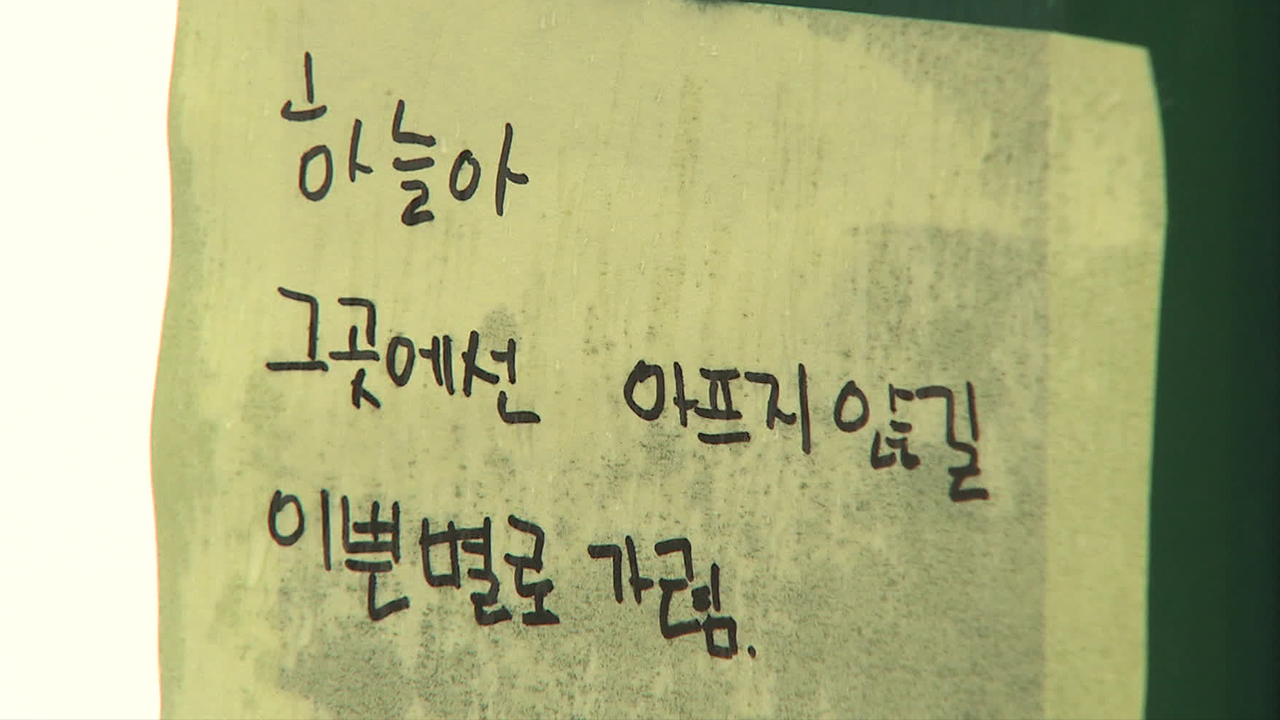 하늘아
그곳에선 아프지 않길
이쁜별로 가렴.